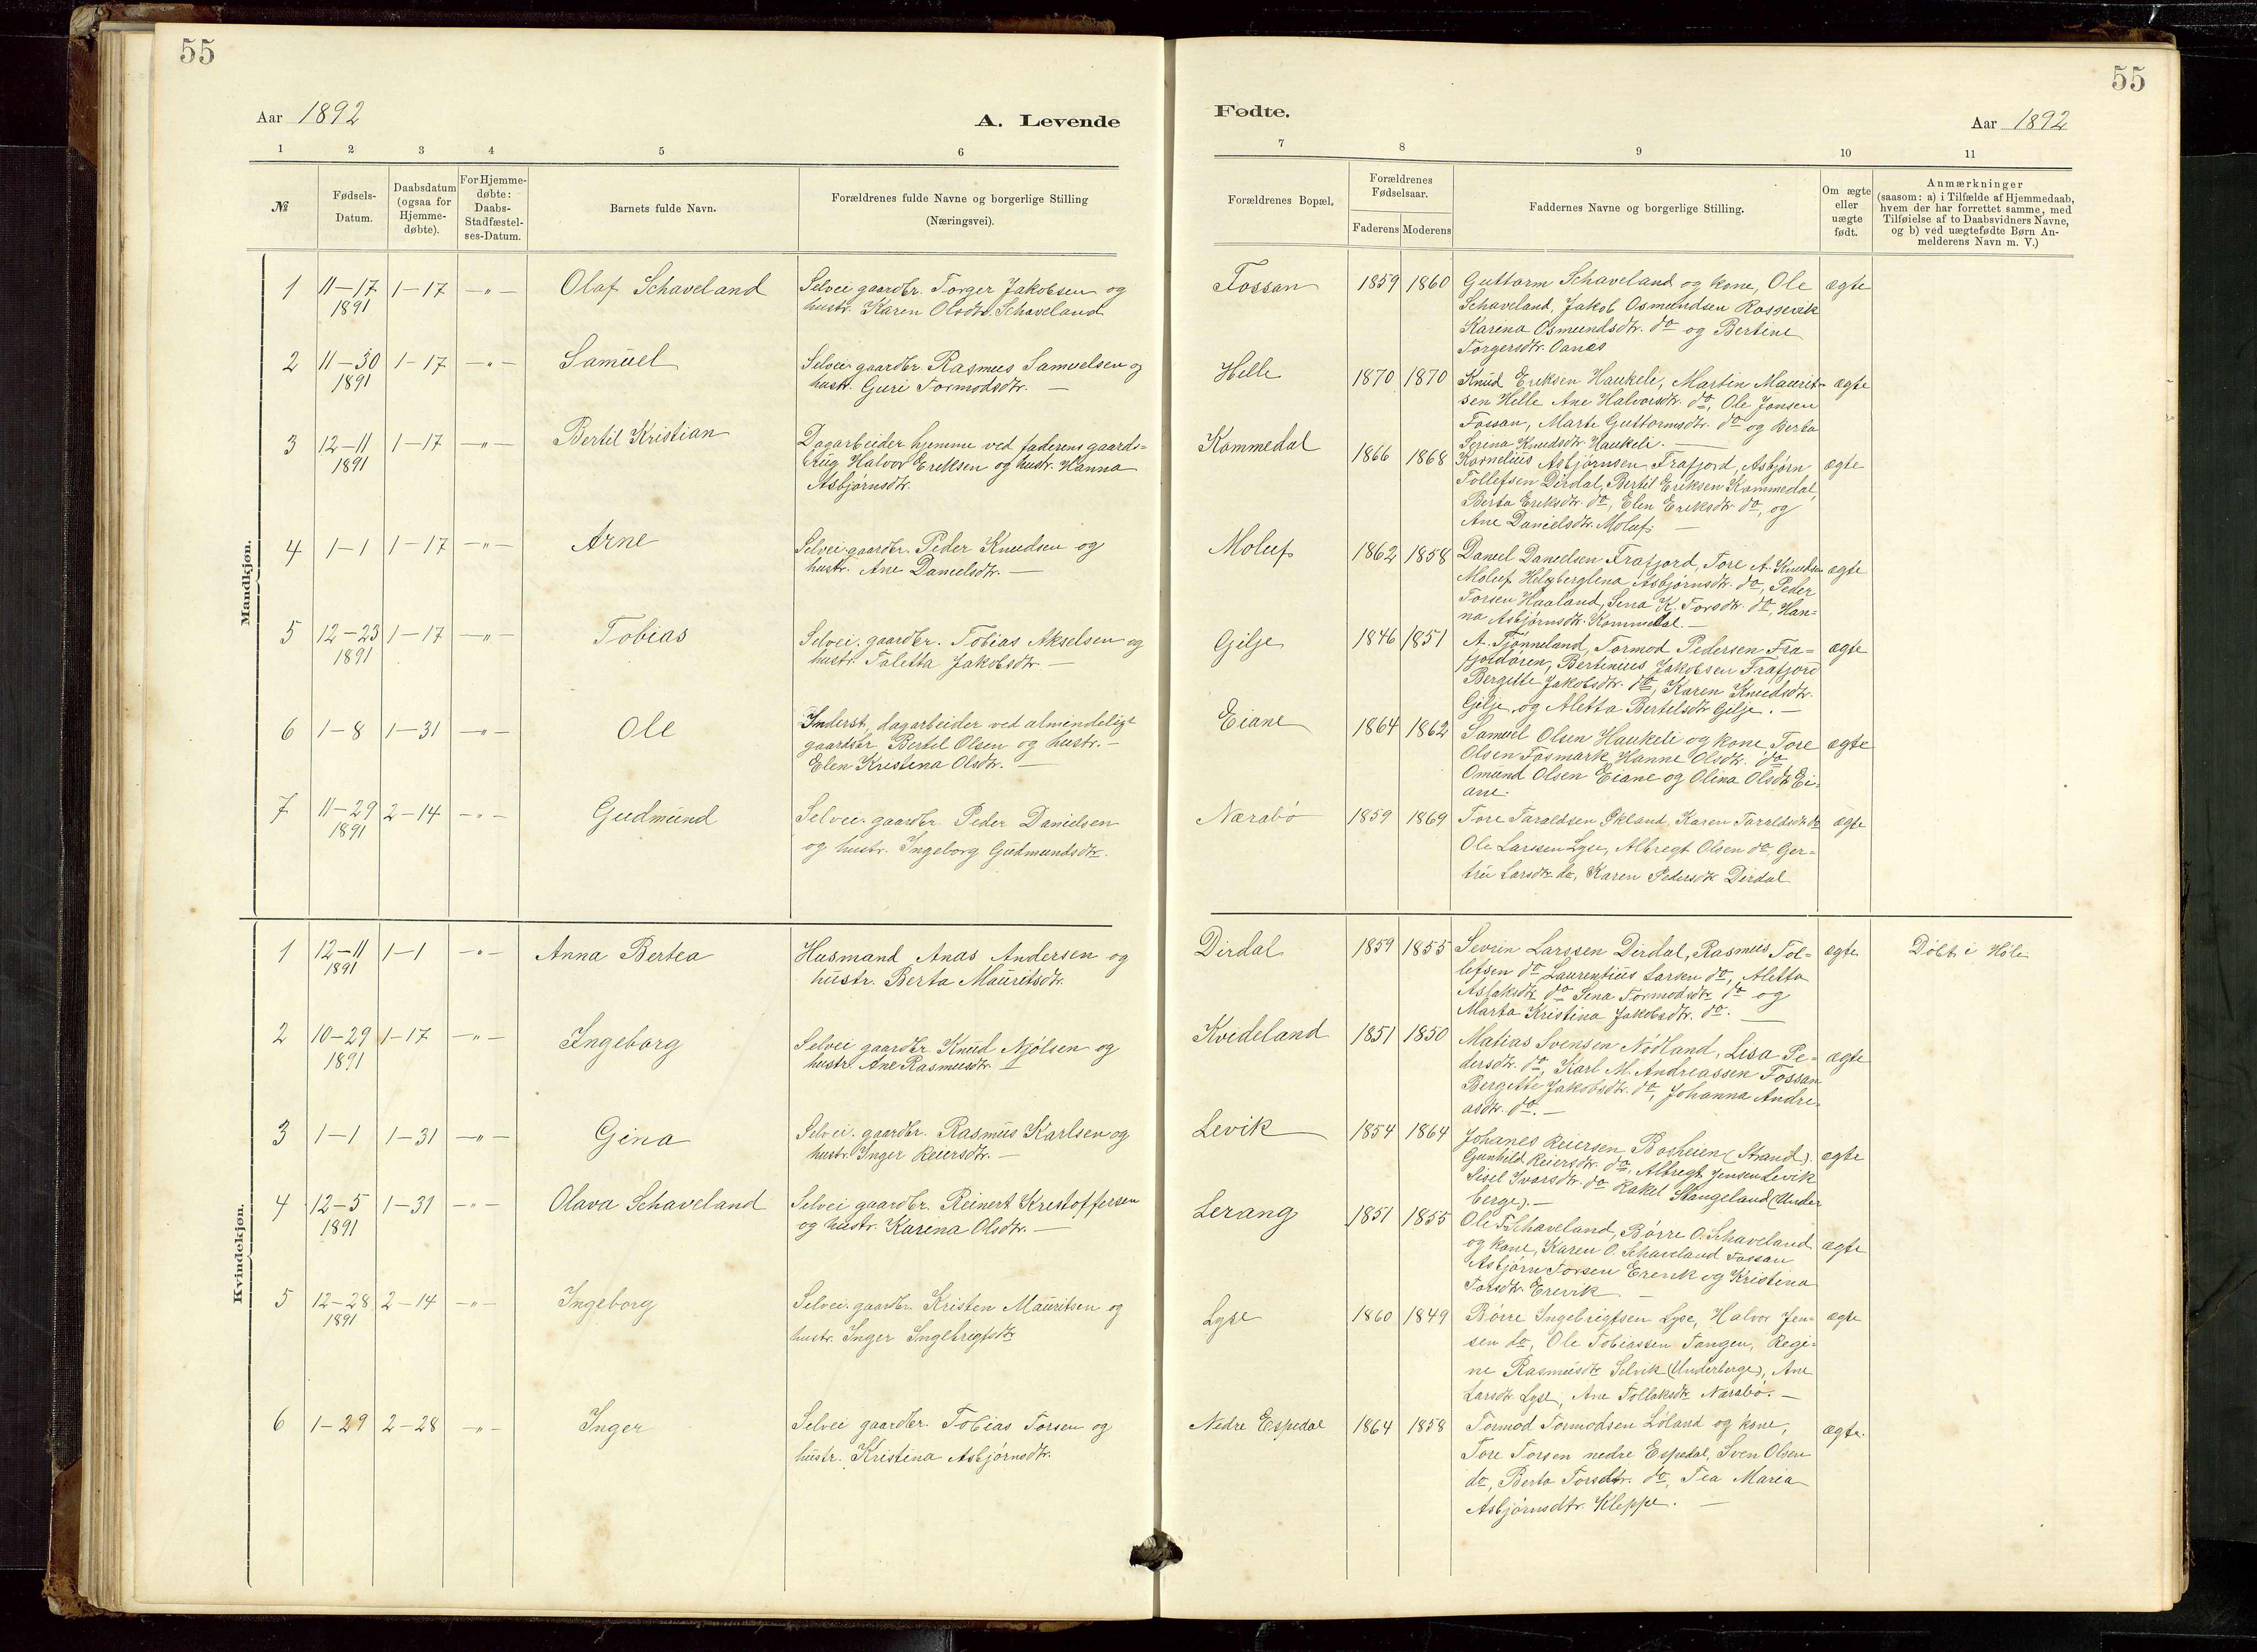 55
Aar 1892
A. Levende
1 2 3 4 5 6
№
Fødsels-
Datum.
Daabsdatum
(ogsaa for
Hjemme-
døbte).
For Hjemme-
døbte:
Daabs-
Stadfæstel-
ses-Datum.
Barnets fulde Navn.
Forældrenes fulde Navne og borgerlige Stilling
(Næringsvei).
Mandkjøn.
1 11-17 1-17 -"- Olaf Schaveland Selvei gaardbr. Torger Jakobsen og
1891 hustr. Karen Olsdtr. Schaveland
2 11-30 1-17 -"- Samuel Selvei. gaardbr. Rasmus Samuelsen og
1891 hustr. Guri Tormodsdtr. —
3 12-11 1-17 -"- Bertil Kristian Dagarbeider hjemme ved faderens gaards=
1891 brug Halvor Eriksen og hustr. Hanna
Asbjørnsdtr.
4 1-1 1-17 -"- Arne Selvei. gaardbr. Peder Knudsen og
hustr. Ane Danielsdtr. —
5 12-23 1-17 -"- Tobias Selvei. gaardbr. Tobias Akselsen og
1891 hustr. Taletta Jakobsdtr. —
6 1-8 1-31 -"- Ole Inderst, dagarbeider ved almindeligt
gaardsbr. Bertel Olsen og hustr. -
Elen Kristina Olsdtr. —
7 11-29 2-14 -"- Gudmund Selvei. gaardbr. Peder Danielsen
1891 og hustr. Ingeborg Gudmundsdtr.
Kvindekjøn.
1 12-11 1-1 -"- Anna Bertea Husmand Anas Andersen og
1891 hustr. Berta Mauritsdtr.
2 10-29 1-17 -"- Ingeborg Selvei gaardbr Knud Njølsen og
1891 hustr. Ane Rasmusdtr.
3 1-1 1-31 -"- Gina Selvei. gaardbr. Rasmus Karlsen og
hustr. Inger Reiersdtr. —
4 12-5 1-31 -"- Olava Schaveland Selvei gaardbr. Reinert Kristoffersen
1891 og hustr. Karina Olsdtr. —
5 12-28 2-14 -"- Ingeborg Selvei. gaardbr. Kristen Mauritsen og
1891 hustr. Inger Ingebrigtsdtr
6 1-29 2-28 -"- Inger Selvei gaardbr. Tobias Torsen og
hustr. Kristina Asbjørnsdtr.
55
Fødte.
Aar 1892
7 8 9 10 11
Forældrenes Bopæl.
Forældrenes
Fødselsaar.
Faderens Moderens
Faddernes Navne og borgerlige Stilling.
Om ægte
eller
uægte
født.
Anmærkninger
(saasom: a) i Tilfælde af Hjemmedaab,
hvem der har forrettet samme, med
Tilføielse af to Daabsvidners Navne,
og b) ved uægtefødte Børn An-
melderens Navn m. V.)
Fossan 1859 1860 Guttorm Schaveland og kone, Ole ægte
Schaveland, Jakob Osmundsen Rossevik
Karina Osmundsdtr. do og Bertine
Torgersdtr. Oanes
Helle 1870 1870 Knud Eriksen Haukeli, Martin Maurit- ægte
sen Helle Ane Halvorsdtr. do, Ole Jonsen
Fossan, Marte Guttormsdtr. do og Berta
Serina Knudsdtr. Haukeli. —
Kommedal 1866 1868 Kornelius Asbjørnsen Frafjord, Asbjørn ægte
Tollefsen Dirdal, Bertil Eriksen Kommedal,
Berta Eriksdtr. do, Elen Eriksdtr. do, og
Ane Danielsdtr. Moluf. —
Moluf 1862 1858 Daniel Danielsen Frafjord, Tore A. Knudsen ægte
Moluf, Helgberglena Asbjørnsdtr. do, Peder
Torsen Haaland, Sena K. Torsdtr. do, Han=
na Asbjørnsdtr. Kommedal. —
Gilje 1846 1851 A. Tjønneland, Tormod Pedersen Fra= ægte
fjordøren, Bertinius Jakobsen Frafjord
Bergitte Jakobsdtr. do, Karen Knudsdtr.
Gilje, og Aletta Bertelsdtr Gilje. —
Eiane 1864 1862 Samuel Olsen Haukeli og kone, Tore ægte
Olsen Fosmark, Hanne Olsdtr. do
Omund Olsen Eiane og Olina Olsdtr Ei-
ane.
Nærabø 1859 1869 Tore Taraldsen Økland, Karen Taraldsdtr do ægte
Ole Larssen Lyse, Albregt Olsen do, Ger=
tru Larsdtr do, Karen Pedersdtr Dirdal
Dirdal 1859 1855 Sevrin Larssen Dirdal, Rasmus Tol= ægte Døbt i Høle
lefsen do Laurentius Larsen do, Aletta
Aslaksdtr. do Sena Tormodsdtr do og
Marta Kristina Jakobsdtr. do. —
Kvideland 1851 1850 Matias Svensen Nødland, Lisa Pe= ægte
dersdtr. do, Karl M. Andreassen Fossan
Bergitte Jakobsdtr. do, Johanna Andre-
asdtr. do. —
Levik 1854 1864 Johanes Reiersen Bosheien (Strand). ægte
Gunhild Reiersdtr. do, Albregt Jensen Levik
Sisel Ivarsdtr. do Rakel Stangeland (Under
berge). —
Lerang 1851 1855 Ole T. Schaveland, Børre O. Schaveland ægte
og kone, Karen O. Schaveland Fossan
Asbjørn Torsen Erevik og Kristina
Torsdtr. Erevik —
Lyse 1860 1849 Børre Ingebrigtsen Lyse, Halvor Jen= ægte
sen do, Ole Tobiassen Tangen, Regi=
ne Rasmusdtr Selvik (Underberge), Ane
Larsdtr. Lyse, Ane Tollaksdtr Nærabø. —
Nedre Espedal 1864 1858 Tormod Tormodsen Løland og kone, ægte.
Tore Torsen nedre Espedal, Sven Olsen
do, Berta Torsdtr. do, Tea Maria
Asbjørnsdtr. Kleppe. —